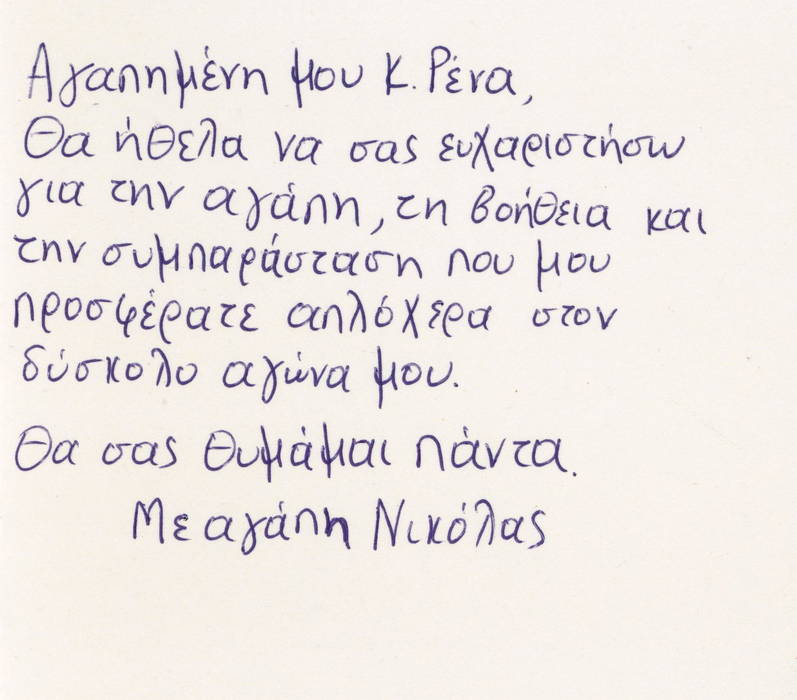 Αγαπημένη μου Κ. Ρένα,
Θα ήθελα να σας ευχαριστήσω
για την αγάπη, τη βοήθεια και
την συμπαράσταση που μου
προσφέρατε απλόχερα στον
δύσκολο αγώνα μου.
Θα σας θυμάμαι πάντα.
Με αγάπη Νικόλας